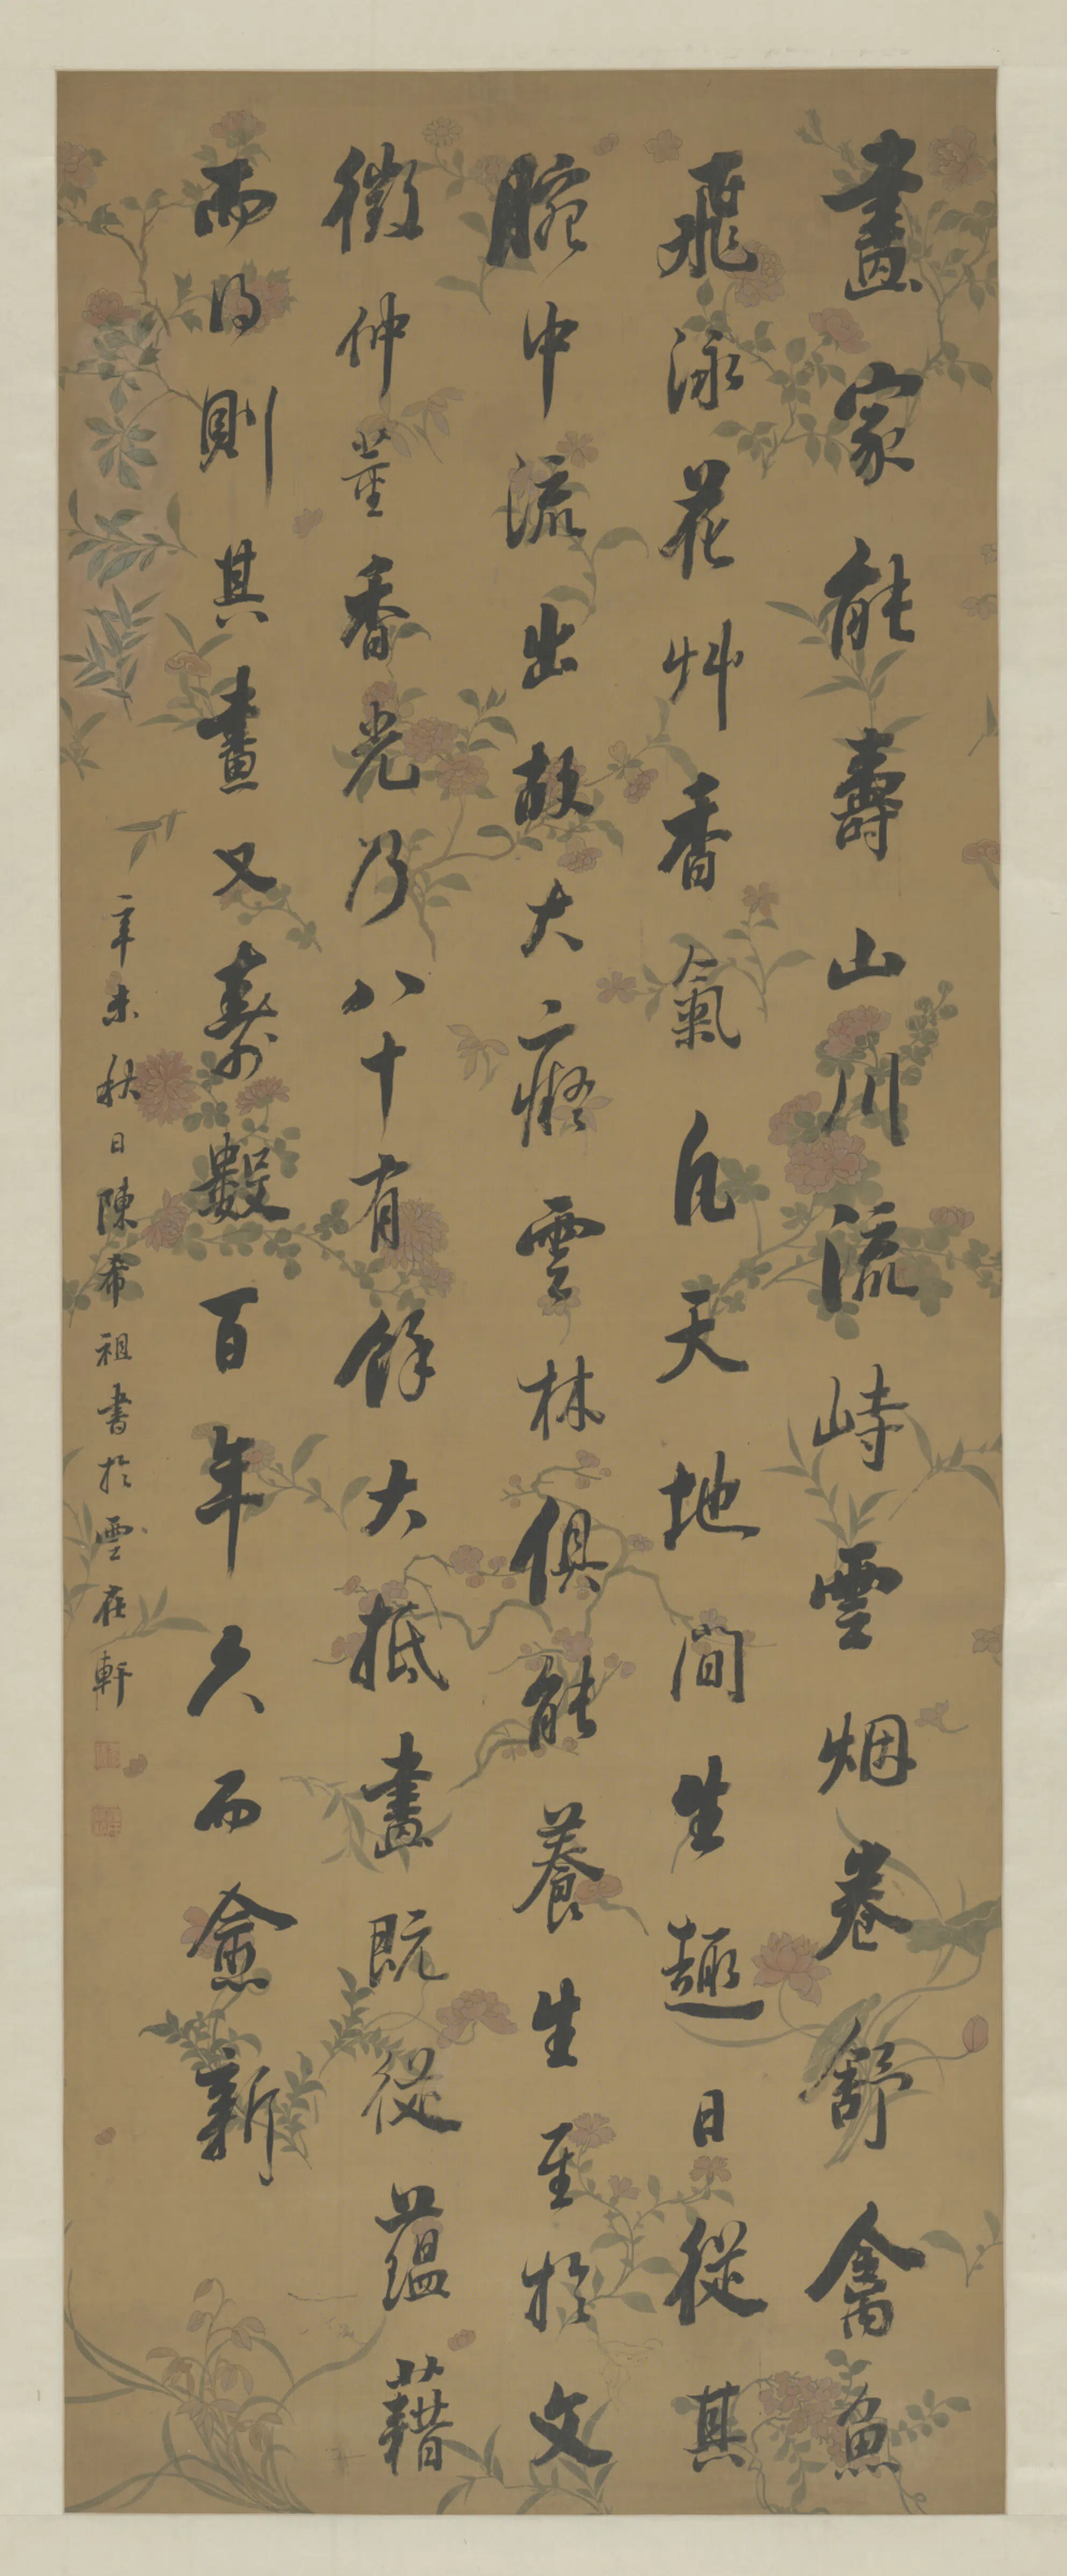 畫家能壽山川流峙雲烟卷舒禽魚
飛泳花艸香氣凡天地間生趣日從其
腕中流出故大癡雲林俱能養生至於文
徵仲董香光乃八十有餘大抵畫既從蘊藉
而得則其畫又壽數百年久而愈新
辛未秋日陳希祖書於雲在軒